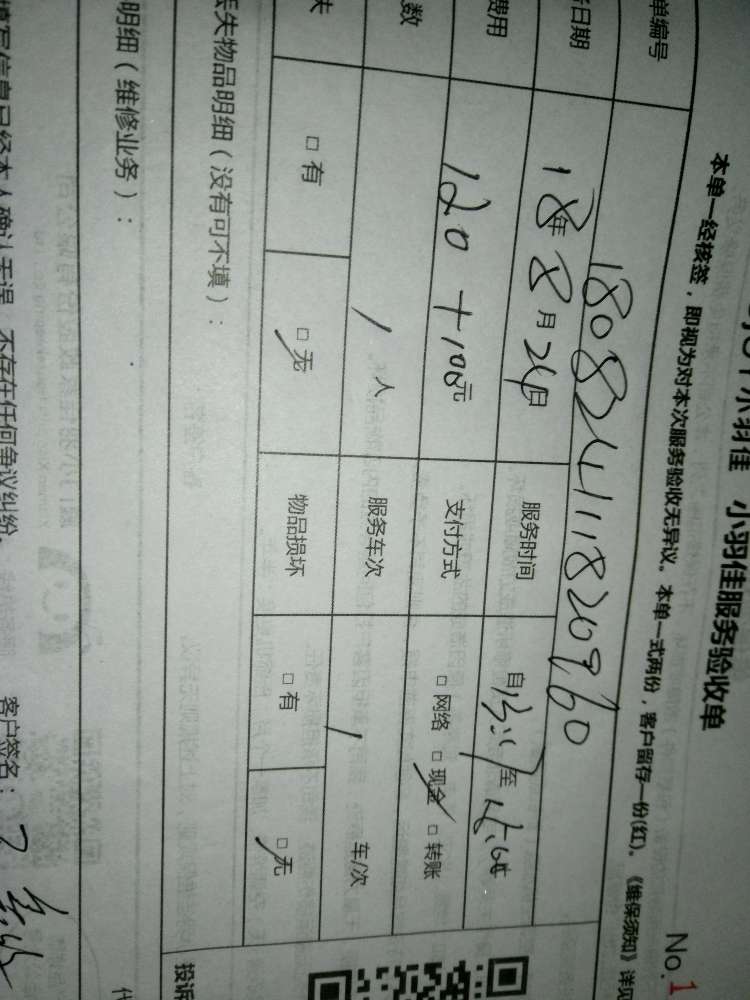 小羽佳 小羽佳服务验收单
本单一经核签，即视为对本次服务验收无异议。本单一式两份，客户留存一份(红)。《维保须知》详见
No.1
单编号 180824111820960
日期 18年8月24日 服务时间 自13:1至
费用 120+100元 支付方式 □网络 □现金 □转账
数 1人 服务车次 1 车/次
□有 □无 物品损坏 □有 □无
丢失物品明细（没有可不填）：
投诉
明细（维修业务）：
填写信息已经本人确认无误，不存在任何争议纠纷。 客户签名：